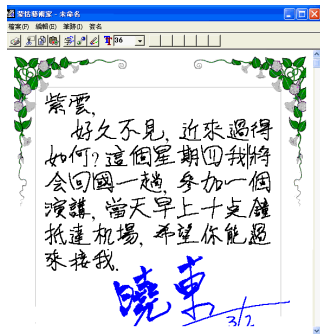 蒙恬藝術家 - 未命名
檔案(F) 編輯(E) 筆跡(I) 簽名
36
紫雲,
好久不見, 近來過得
如何? 這個星期四我將
会回國一趟, 參加一個
演講, 當天早上十点鐘
抵達机場, 希望你能過
來接我.
曉東
3/2